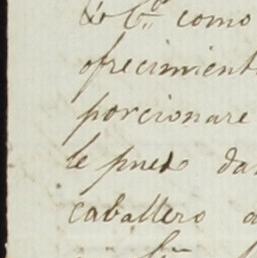 como
ofrecimient
porcionare
le pued da
caballero a